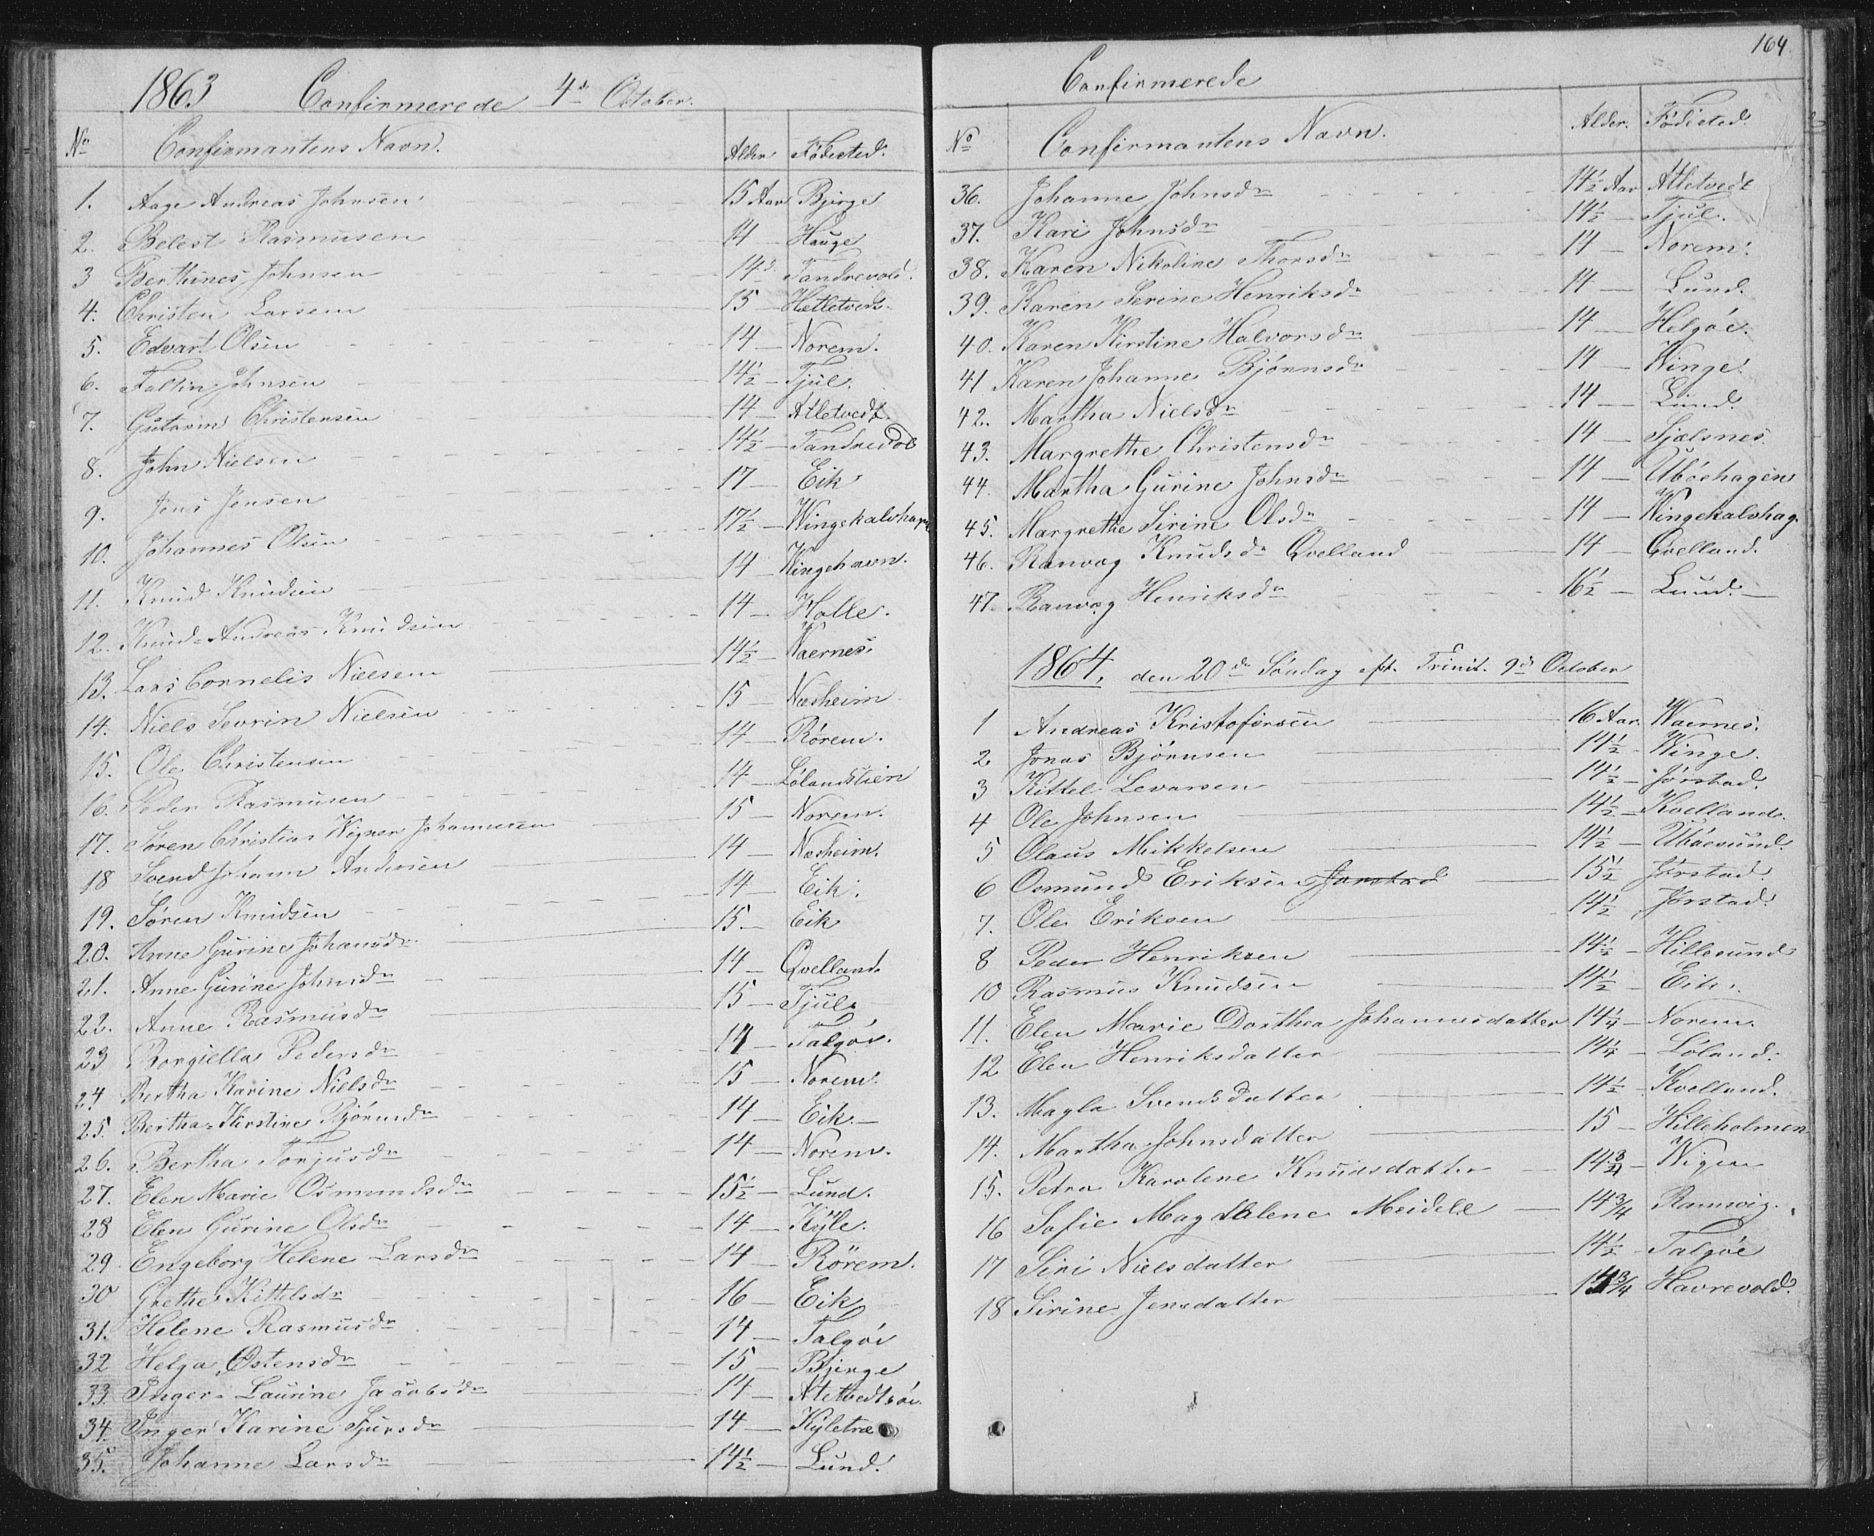 1863 Confirmerede 4de October.
No Confirmantens Navn. Alder Fødested.
1. Aage Andreas Johnsen 15 Aar Bjerge
2. Belest Rasmusen 14 — Hauge
3 Berthines Johnsen 14 Tandrevold.
4. Christen Larsen 15 — Hetletvedt.
5. Edvart Olsen 14 — Norem.
6. Faltin Johnsen 14½ — Tjul.
7. Gutorm Christensen 14 — Atletvedt.
8. John Nielsen 14½ — Tandrevol
9. Jens Jensen 17 — Eik
10. Johannes Olsen 17½ — Wingekalvhagen
11. Knud Knudsen 14 — Wingehavn.
12. Knud Andreas Knudsen 14 — Halle.
13. Lars Cornelis Nielsen 14½ — Waernes
14. Niels Sevrin Nielsen 15 — Nesheim
15. Ole Christensen 14 — Rørem.
16. Peder Rasmusen 14 — Lølandstien
17. Søren Christian Wegner Johannesen 15 — Norem.
18 Svend Johann Andersen 14 — Nesheim.
19. Søren Knudsen 14 — Eik.
20. Anne Gurine Johansdr 15 — Eik
21. Anne Gurine Johnsdr 14 — Qvelland.
22. Anne Rasmusdr 15 — Tjul
23 Borgiella Pedersdr 14 — Talgøe.
24 Bertha Karine Nielsdr 15 — Norem.
25. Bertha Kirstine Bjørnsdr 14 — Eik. —
26. Bertha Torjusdr 14 — Norem.
27. Elen Marie Osmundsdr 15½ — Lund.
28 Elen Gurine Olsdr 14 — Kyle.
29 Engeborg Helene Larsdr 14 — Rörem.
30 Grethe Kittelsdr 16 — Eik
31. Helene Rasmusdr 14 — Talgøe
32 Helga Østensdr 15 — Bjerge
33. Inger Laurine Jacobsdr 14 — Atletvedtøe.
34. Inger Karine Sjursdr 14 — Kyletræ
35. Johanne Larsdr 14½ — Lund.
164.
Confirmerede
No Confirmantens Navn. Alder. Fødested.
36. Johanne Johnsdr 14½ Aar Atletvedt
37. Kari Johnsdr 14½ — Tjul.
38. Karen Nikoline Thorsdr 14 — Norem.
39. Karen Serine Henriksdr 14 — Lund.
40. Karen Kirstine Halvorsdr 14 — Helgøe.
41 Karen Johanne Bjørnsdr 14 — Winge.
42. Martha Nielsdr 14 — Lund.
43. Margrethe Christensdr 14 — Sjælsnes
44. Martha Gurine Johnsdr 14 — Ubøehagen
45. Margrethe Sirine Olsdr 14 — Wingekalvhag.
46. Ranvog Knudsdr Qvelland 14 — Qvelland.
47. Ranvog Henriksdr 16½ — Lund. —
1864, den 20de Søndag eft. Trinit. 9de October
1 Andreas Kristofersen 16 Aar. Waernes.
2 Jonas Bjørnsen 14½ — Winge.
3 Kittel Levarsen 14½ — Jørstad.
4 Ole Johnsen 14½ — Kvelland.
5 Olaus Mikkelsen 14½ — Ubøesund.
6 Osmund Eriksen Jørstad 15½ Jørstad.
7. Ole Eriksen 14½ Jørstad.
8 Peder Henriksen 14½ — Hillesund
10 Rasmus Knudsen 14½ — Eik.
11. Elen Marie Dorthea Johannesdatter 14¼ — Norem.
12 Elen Henriksdatter 14¼ — Løland.
13. Magla Svendsdatter 14½ — Kvelland.
14. Martha Johnsdatter 15 — Hilleholmen
15. Petra Karolene Knudsdatter 14¾ — Wigen
16 Sofie Magdalene Meidell 14¾ — Ramsvig.
17 Siri Nielsdatter 14½ — Talgøe
18 Sirine Jensdatter ¾ Havrevold.